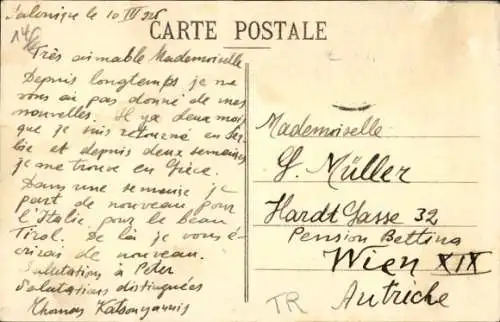 Salonique le 10 IV 926
CARTE POSTALE
Très aimable Mademoiselle
Depuis longtemps je ne
vous ai pas donné de mes
nouvelles. Il y a deux mois
que je suis retourné en Ser-
bie et depuis deux semaines
je me trouve en Grèce.
Dans une semaine je
part de nouveau pour
l'Italie pour le beau
Tirol. De là je vous é-
crirai de nouveau.
Salutations à Peter
Salutations distinguées
Thomas Katsouyannis
Mademoiselle
G. Müller
Hardt Gasse 32
Pension Bettina
Wien XIX
Autriche
TR